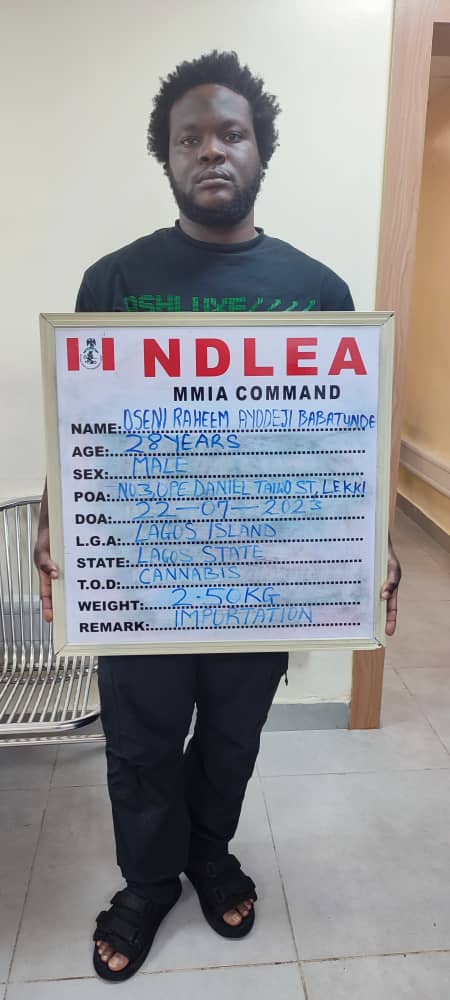 NDLEA
MMIA COMMAND
NAME: OSENI RAHEEM AYODEJI BABATUNDE
AGE: 28 YEARS
SEX: MALE
POA: NO 3, OPE DANIEL TAIWO ST, LEKKI
DOA: 22-07-2023
L.G.A: LAGOS ISLAND
STATE: LAGOS STATE
T.O.D: CANNABIS
WEIGHT: 2.50KG
REMARK: IMPORTATION